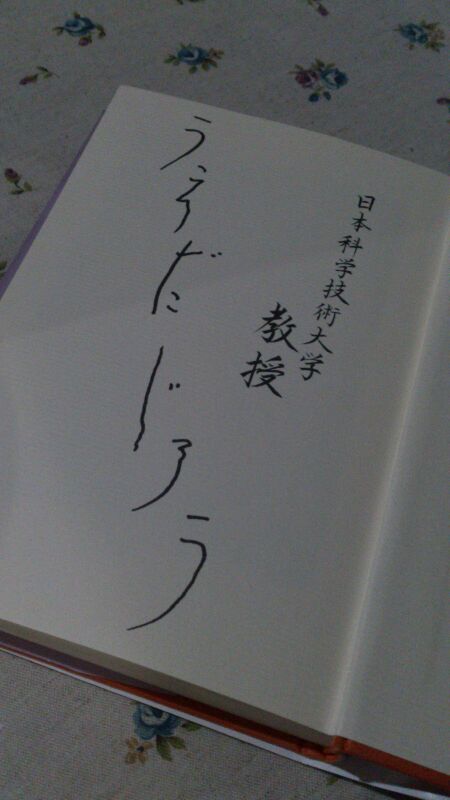 日本科学技術大学
教授
うえだじろう